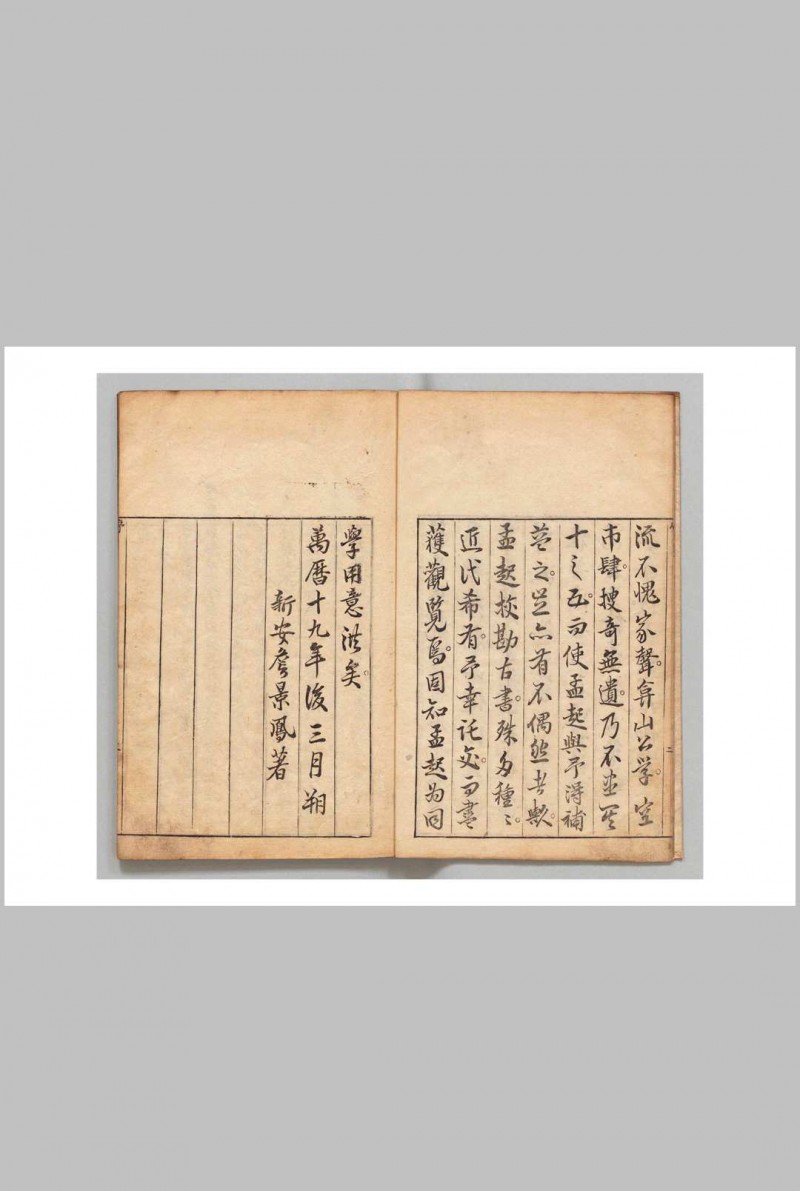 流不愧家聲。弇山公學。空
市肆。搜奇無遺。乃不
十之五。而使孟起與予淂補
益之。豈亦有不偶然者歟。
孟起挍勘古書。殊多種〻。
近代希有。予幸託交。而盡
獲觀覽焉。因知孟起為同
學用意洪矣。
萬曆十九年後三月朔
新安詹景鳳著